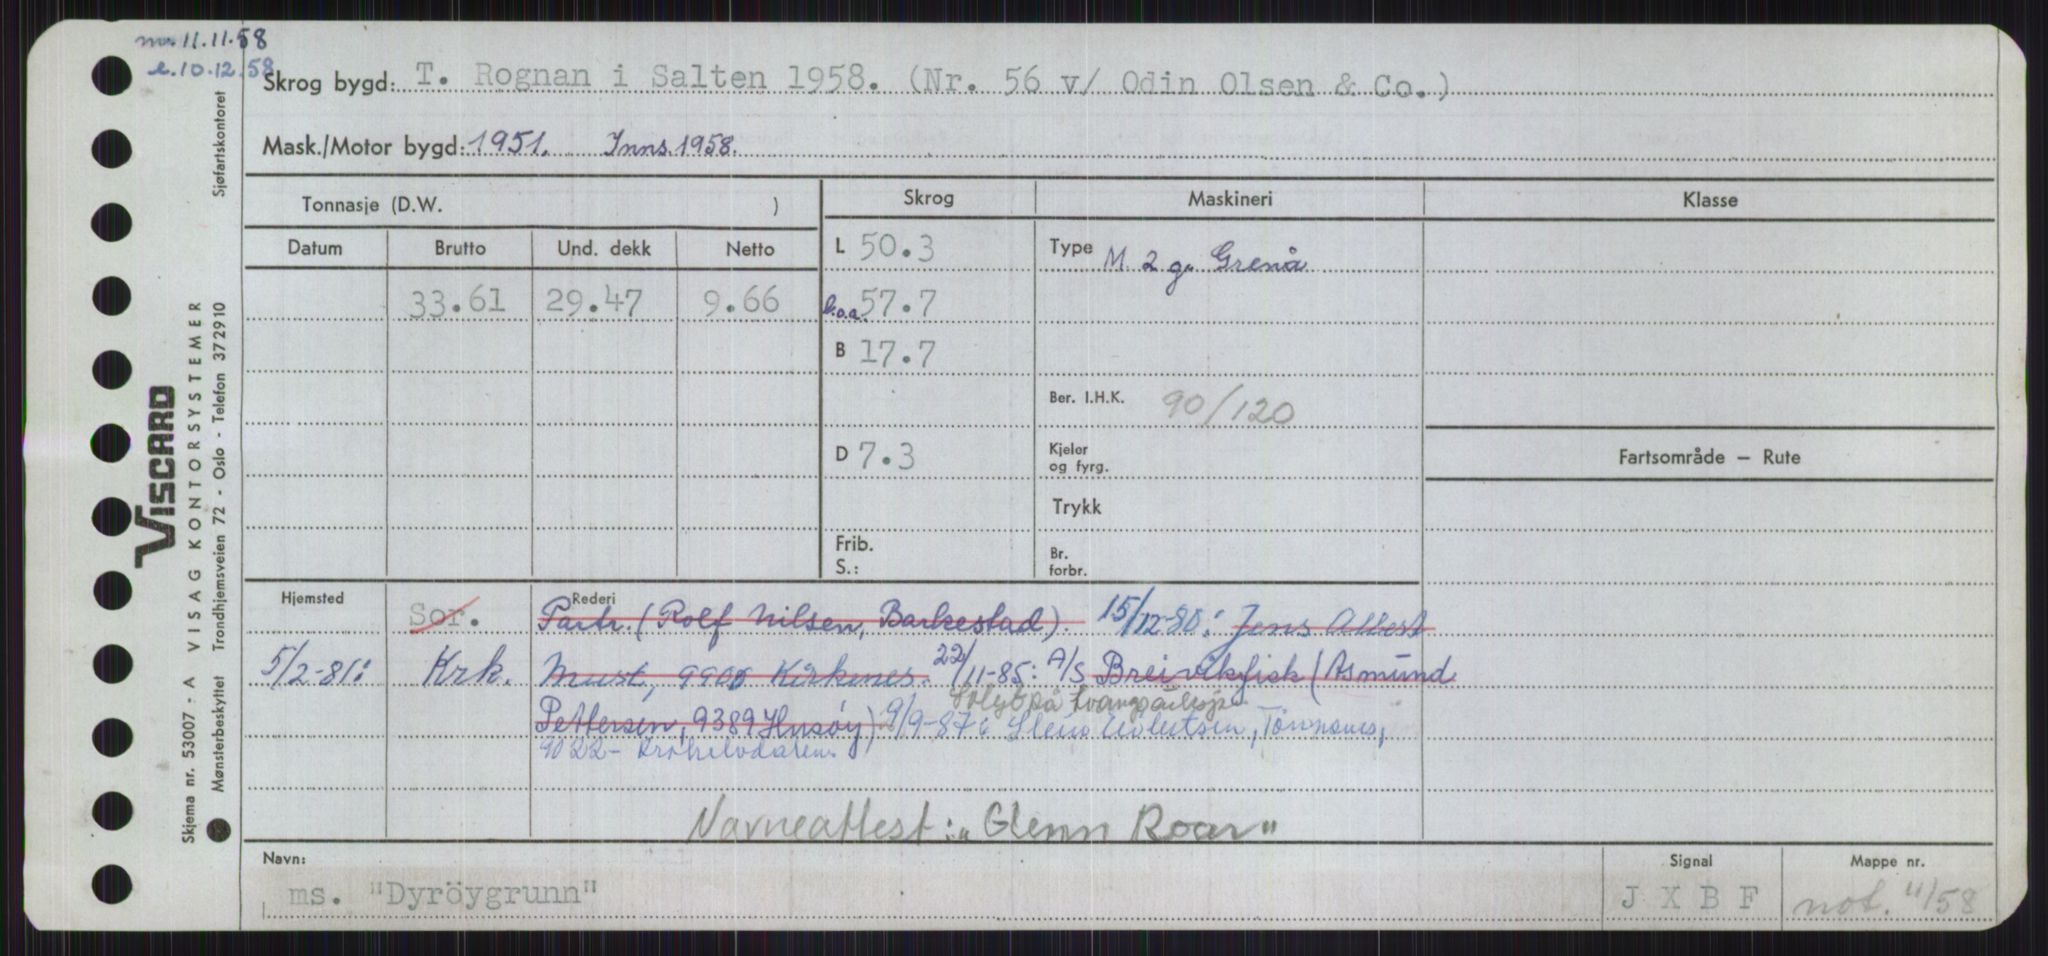 11.11.58
10.12.58
Skrog bygd: T. Rognan i Salten 1958. (Nr. 56 v/ Odin Olsen & Co.)
Mask./Motor bygd: 1951. Inns. 1958.
Tonnasje (D.W. ) Skrog Maskineri Klasse
Datum Brutto Und. dekk Netto L 50.3 Type M 2 g. Grenå
33.61 29.47 9.66 l.o.a. 57.7
B 17.7
Ber. I.H.K. 90/120
D 7.3 Kjeler og fyrg. Fartsområde – Rute
Trykk
Frib. S.: Br. forbr.
Hjemsted Rederi
Sor. Partr. (Rolf Nilsen, Barkestad). 15/12-80: Jens Albert
5/2-81: Krk. Must, 9900 Kirkenes. 22/11-85: A/S Breivikfisk (Asmund
Solgt på tvangsauksjon
Pettersen, 9389 Husøy) 9/9-87: Tønnsnes,
9022- Krokelvdalen
Navneattest: "Glenn Roar"
Navn: Signal Mappe nr.
ms. "Dyröygrunn" J X B F not. 11/58
VISCARD
Skjema nr. 53007 - A VISAG KONTORSYSTEMER
Mønsterbeskyttet Trondhjemsveien 72 - Oslo - Telefon 372910 Sjøfartskontoret